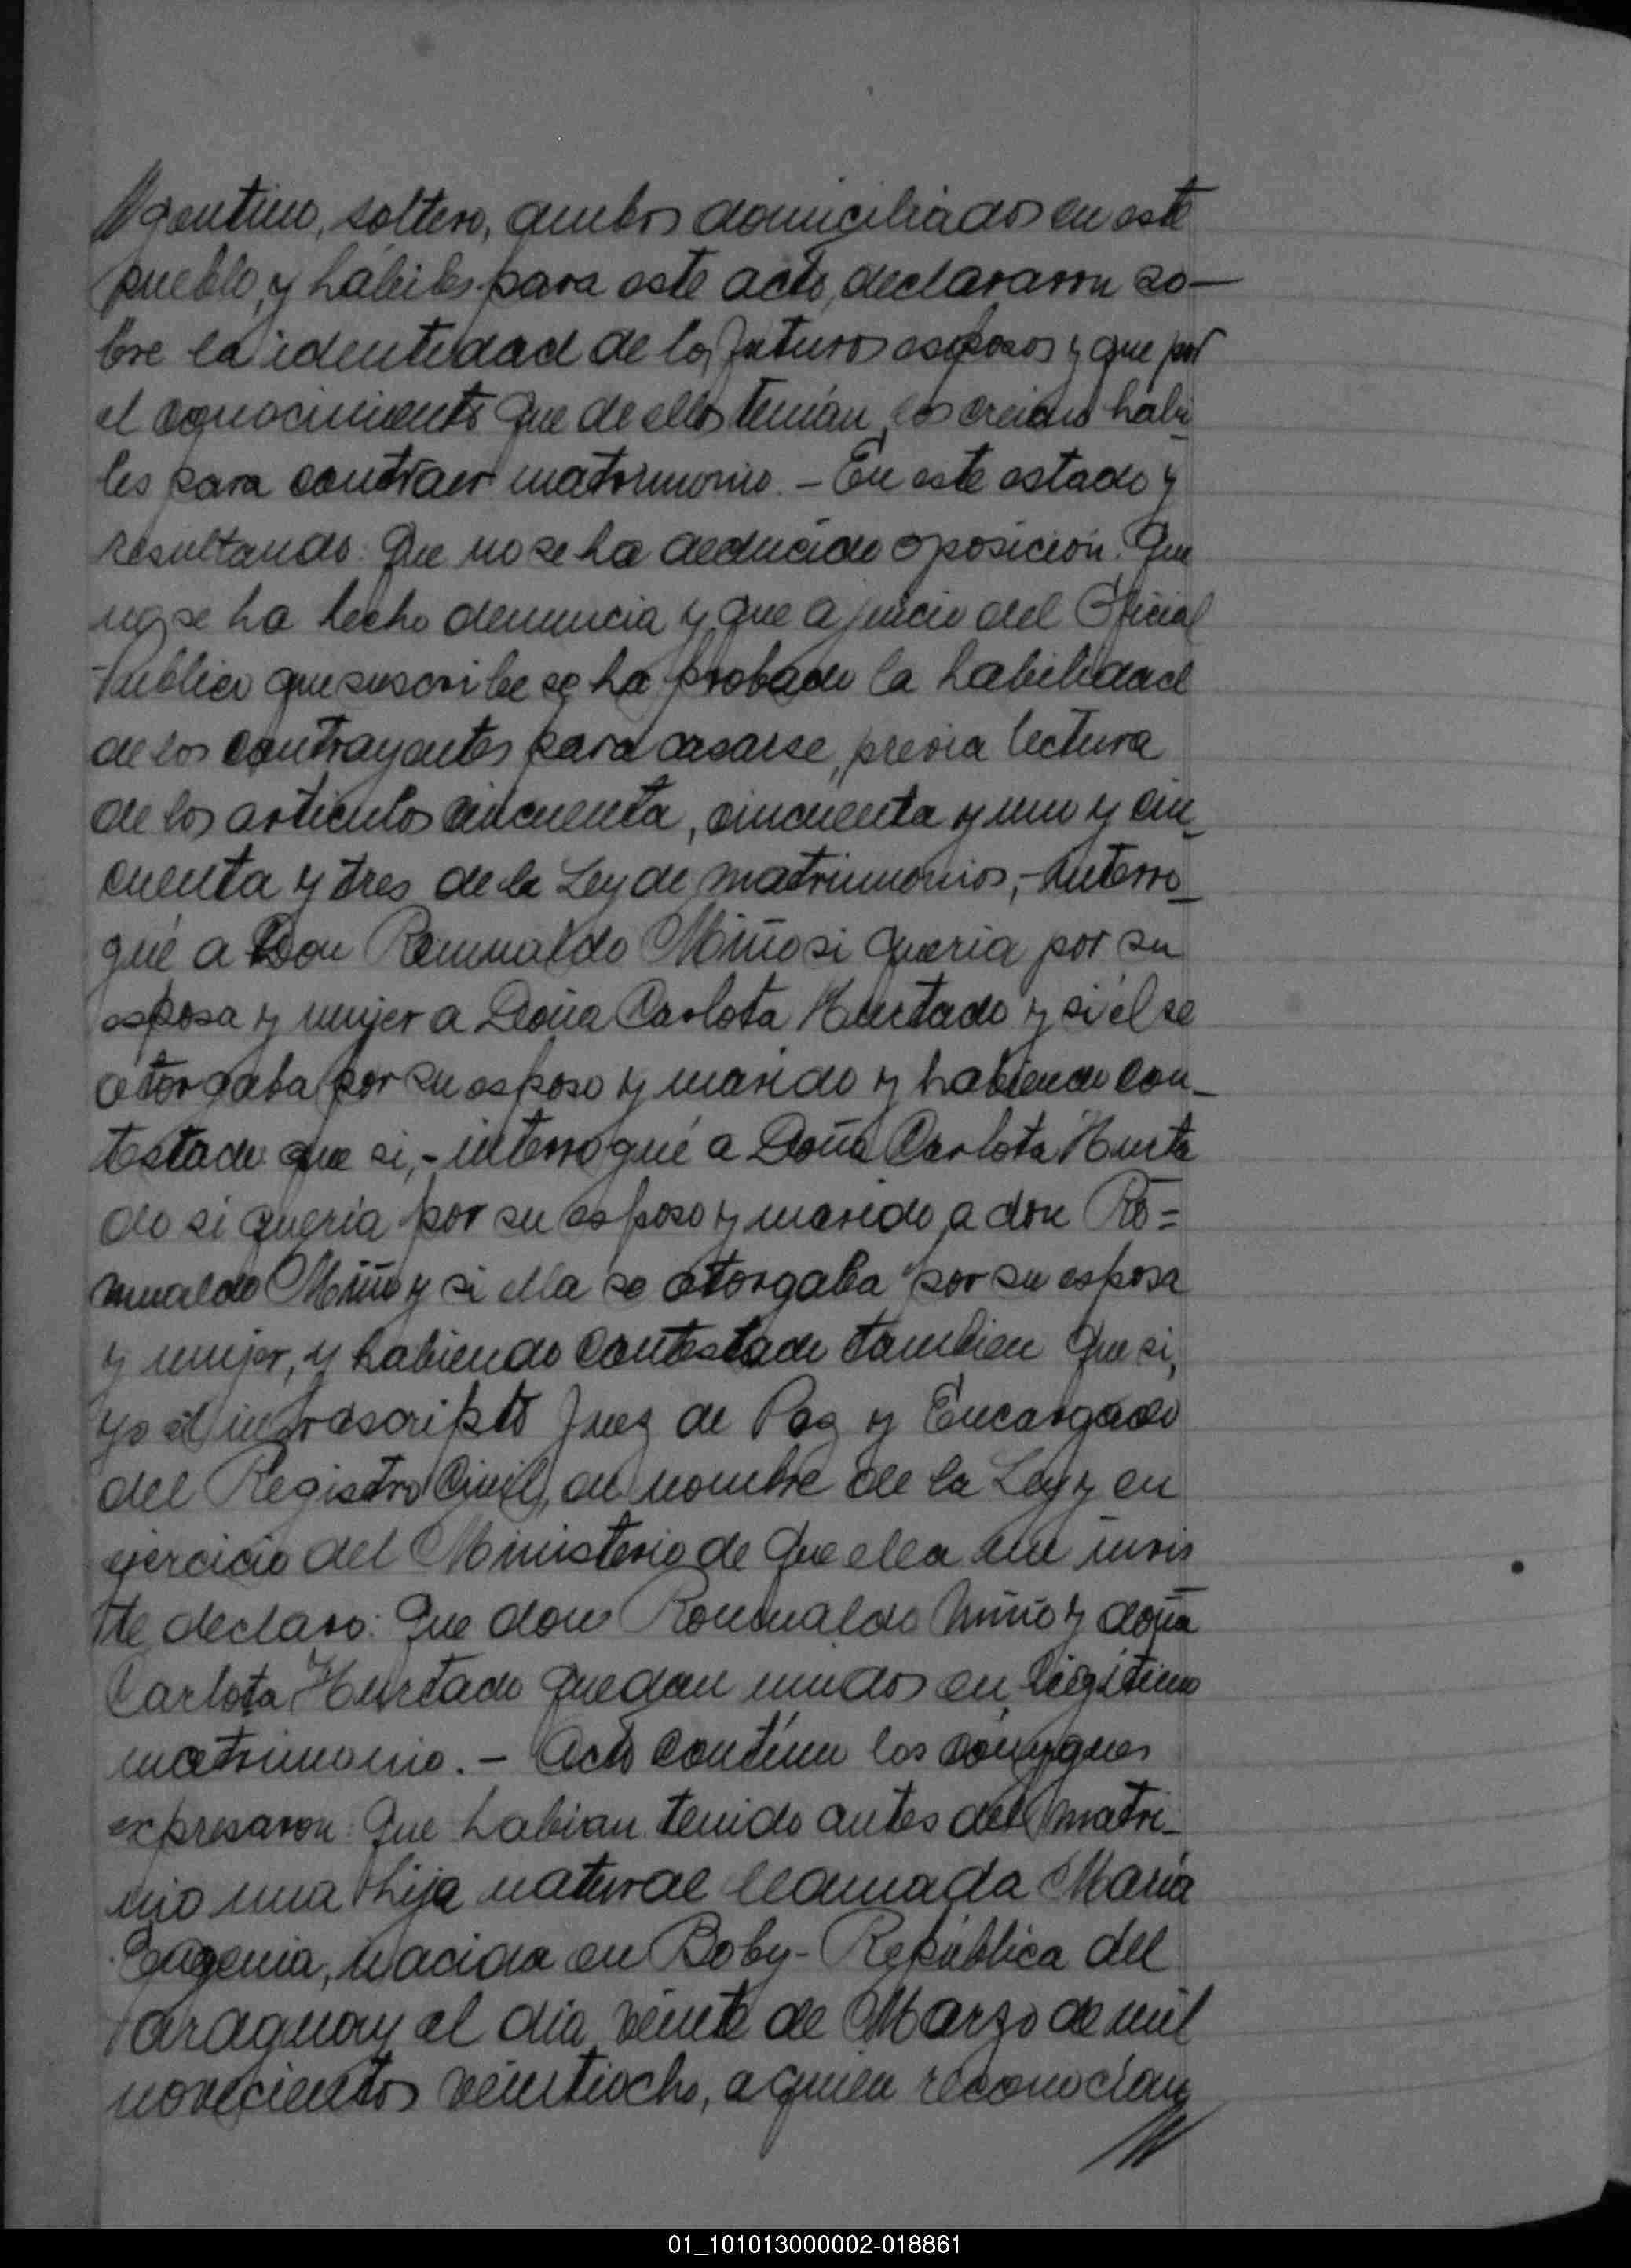 //gentino, soltero, ambos domiciliados en este
pueblo, y hábiles para este acto, declararon so-
bre la identidad de los futuros esposos y que por
el conocimiento que de ellos tenían, los creían hábi-
les para contraer matrimonio. - En este estado y
resultando: Que no se ha deducido oposición. Que
no se ha hecho denuncia y que a juicio del Oficial
Público que suscribe se ha probado la habilidad
de los contrayentes para casarse, previa lectura
de los artículos cincuenta, cincuenta y uno y cin-
cuenta y tres de la Ley de matrimonios, - interro-
gué a Don Romualdo Miño si quería por su
esposa y mujer a Doña Carlota Hurtado y si él se
otorgaba por su esposo y marido y habiendo con-
testado que si, - interrogué a Doña Carlota Hurta
do si quería por su esposo y marido a don Ro=
mualdo Miño y si ella se otorgaba por su esposa
y mujer, y habiendo contestado tambien que si,
yo el infrascripto Juez de Paz y Encargado
del Registro Civil, en nombre de la Ley y en
ejercicio del Ministerio de que ella me invis
te declaro: Que don Romualdo Miño y doña
Carlota Hurtado quedan unidos en legítimo
matrimonio. - Acto contínuo los cónyugues
expresaron: Que habian tenido antes del matri-
nio una hija natural llamada María
Eugenia, nacida en Boby - República del
Paraguay el día veinte de Marzo de mil
novecientos veintiocho, a quien reconocían
//
01_101013000002-018861